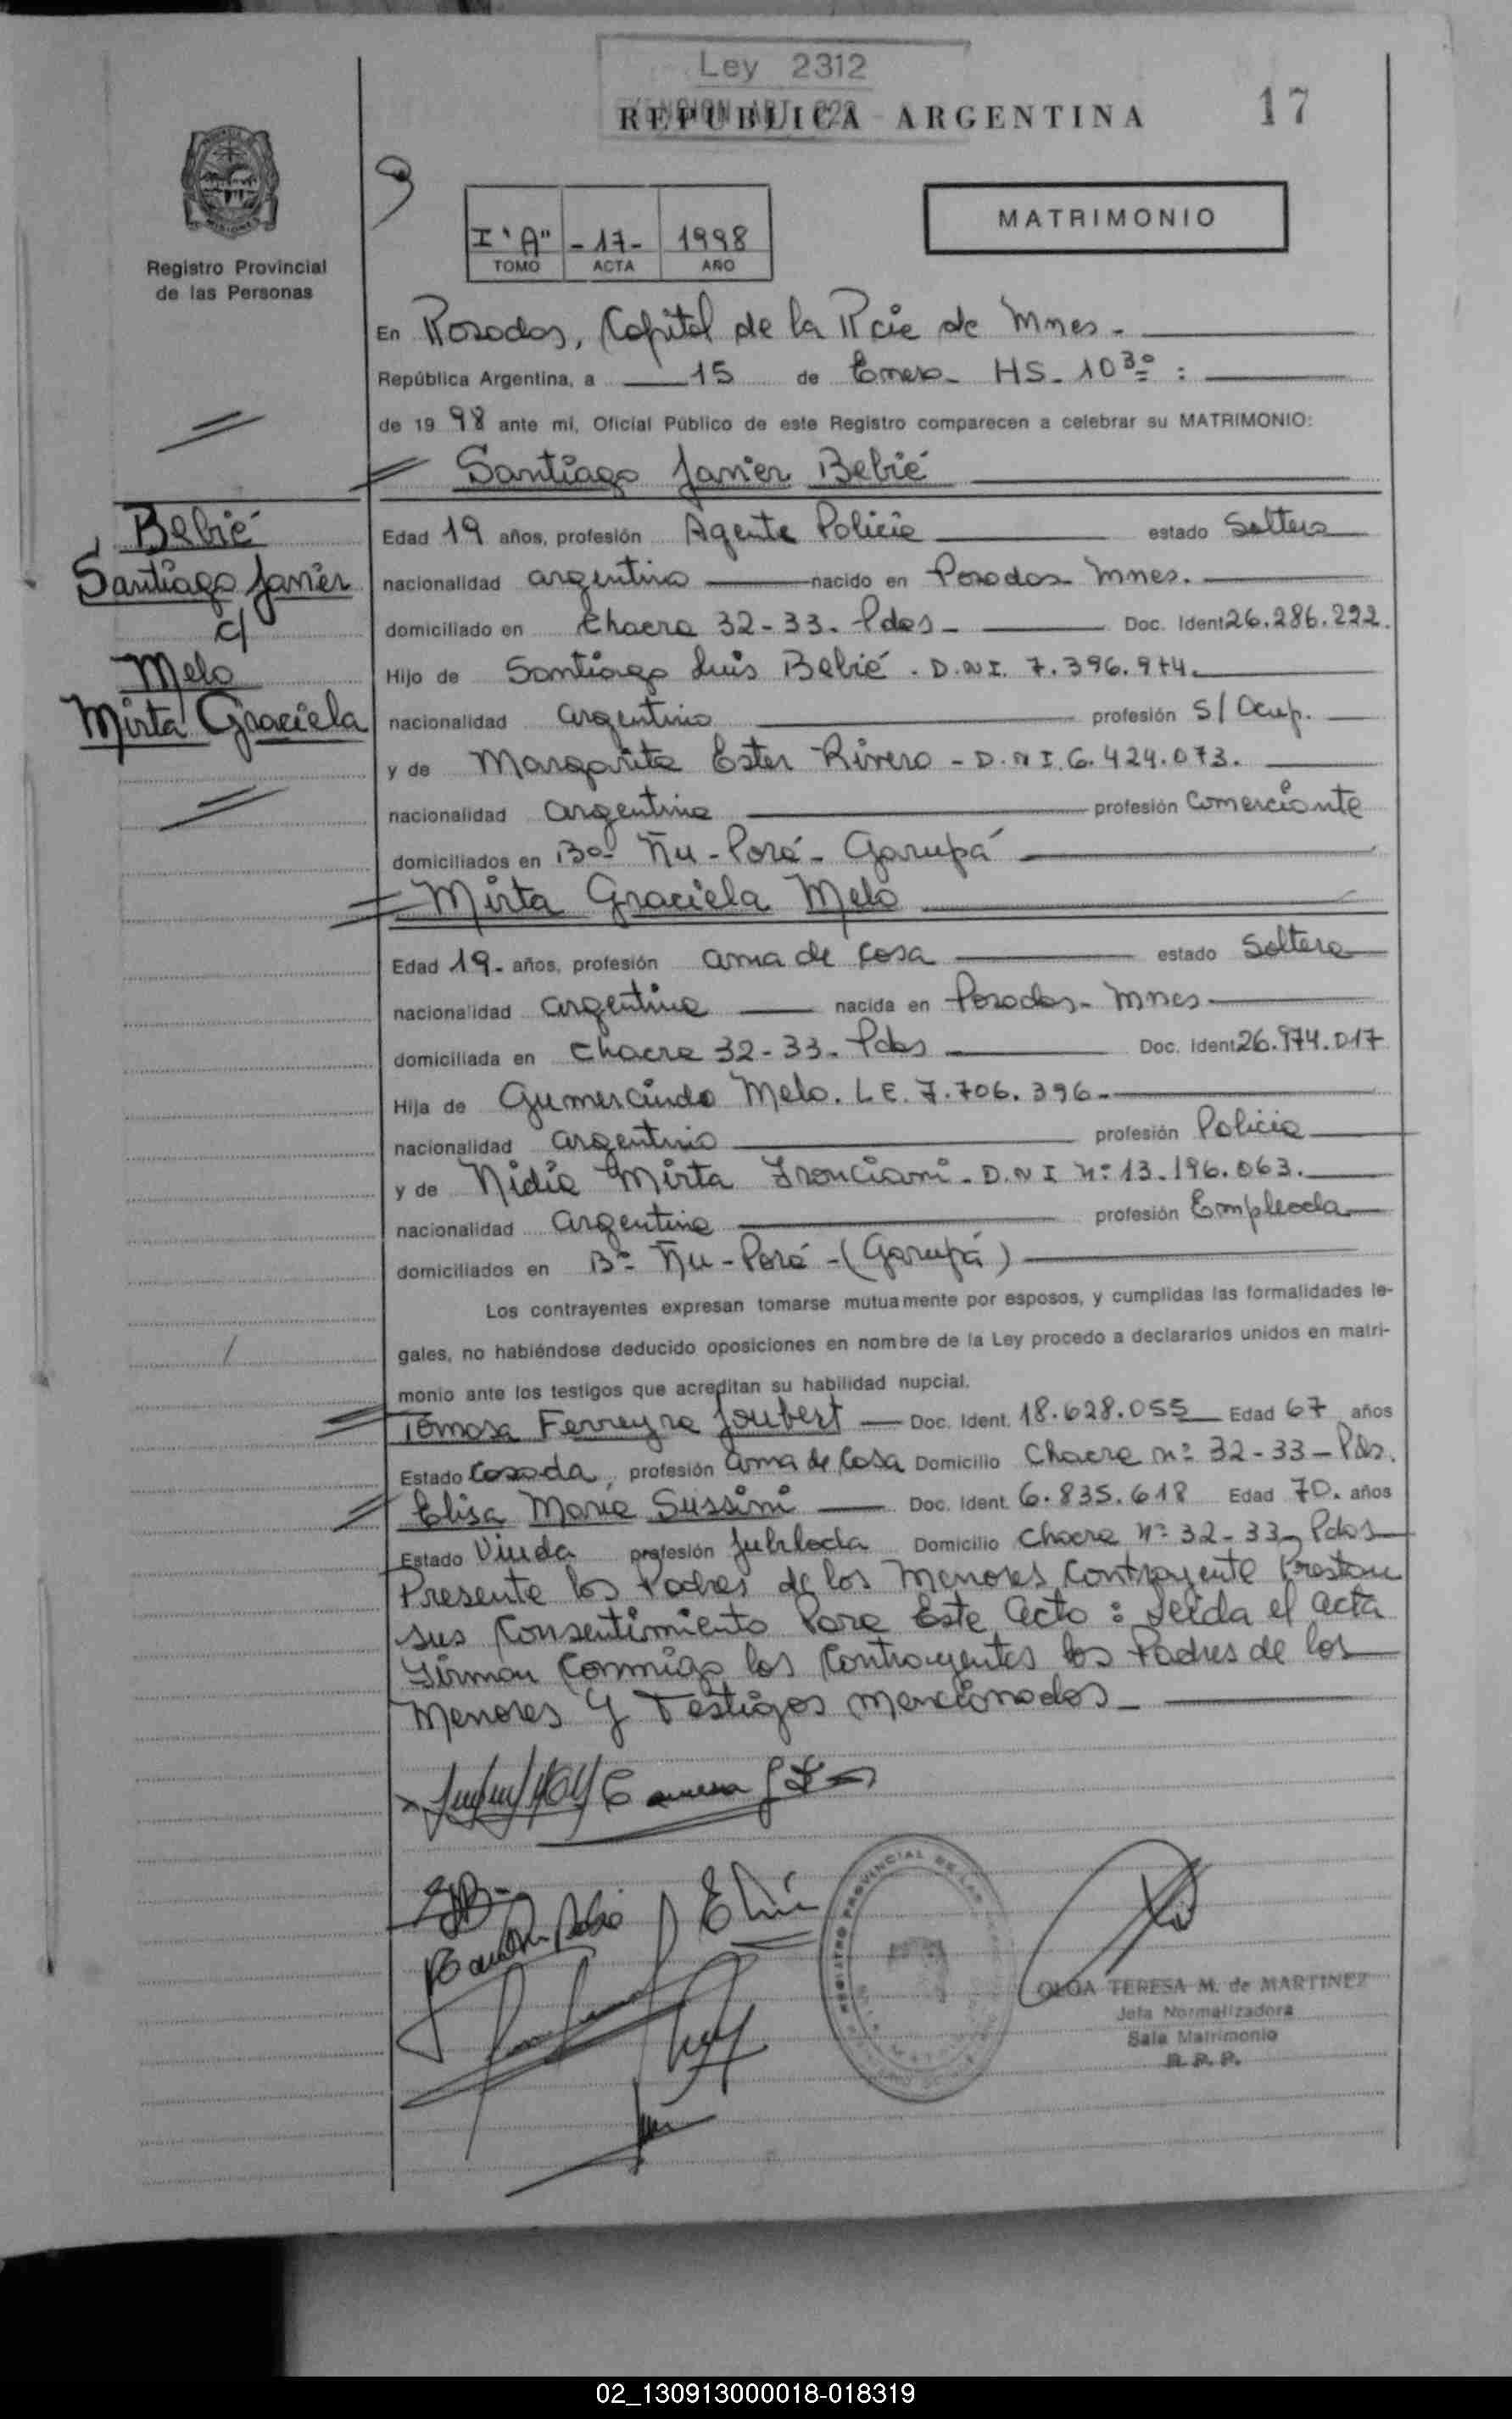 Ley 2312
REPUBLICA ARGENTINA
17
Registro Provincial
de las Personas
I "A" - 17 - 1998
TOMO ACTA AÑO
MATRIMONIO
En Posadas, Capital de la Pcia de Mnes.
República Argentina, a 15 de Enero - HS. 10 30 :
de 19 98 ante mi, Oficial Público de este Registro comparecen a celebrar su MATRIMONIO:
Santiago Javier Bebié
Bebié
Santiago Javier
c/
Melo
Mirta Graciela
Edad 19 años, profesión Agente Policia estado Soltero
nacionalidad argentino nacido en Posadas Mnes.
domiciliado en Chacra 32-33. Pdas - Doc. Ident 26.286.222.
Hijo de Santiago Luis Bebié. D.N.I. 7.396.974.
nacionalidad argentino profesión S/ Ocup.
y de Margarita Ester Rivero - D.N.I. 6.424.073.
nacionalidad argentina profesión Comerciante
domiciliados en Bº Ñu-Porá - Garupá
Mirta Graciela Melo
Edad 19. años, profesión ama de casa estado Soltera
nacionalidad argentina nacida en Posadas - Mnes
domiciliada en Chacra 32-33. Pdas Doc. Ident 26.974.017
Hija de Gumercindo Melo. L E. 7.706.396 -
nacionalidad argentino profesión Policia
y de Nidia Mirta Franciani - D.N I Nº 13.196.063.
nacionalidad argentina profesión Empleada
domiciliados en Bº Ñu-Porá - (Garupá)
Los contrayentes expresan tomarse mutuamente por esposos, y cumplidas las formalidades le-
gales, no habiéndose deducido oposiciones en nombre de la Ley procedo a declararlos unidos en matri-
monio ante los testigos que acreditan su habilidad nupcial.
Tomasa Ferreyra Joubert Doc. Ident. 18.628.055 Edad 67 años
Estado Casada, profesión ama de Casa Domicilio Chacra nº 32-33 - Pds.
Elisa Maria Sussini Doc. Ident. 6.835.618 Edad 70. años
Estado Viuda profesión Jubilada Domicilio Chacra Nº 32-33, Pdas
Presente los Padres de los Menores Contrayente Prestan
sus Consentimiento Para Este Acto : Leida el acta
Firman Conmigo los Contrayentes los Padres de los
Menores y Testigos mencionados -
REGISTRO PROVINCIAL DE LAS
OLGA TERESA M. de MARTINEZ
Jefa Normalizadora
Sala Matrimonio
R. P. P.
02_130913000018-018319